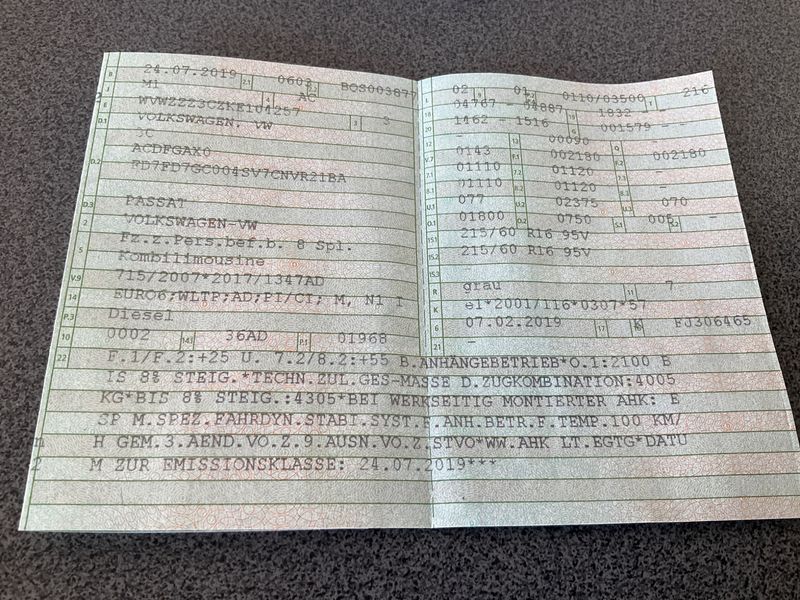 B 24.07.2019 2.1 0603 2.2 BOS003877
J M1 4 AC
E WVWZZZ3CZKE104257 3 3
D.1 VOLKSWAGEN. VW
3C
D.2 ACDFGAX0
FD7FD7GC004SV7CNVR21BA
D.3 PASSAT
2 VOLKSWAGEN-VW
5 Fz.z.Pers.bef.b. 8 Spl.
Kombilimousine
V.9 715/2007*2017/1347AD
14 EURO6;WLTP;AD;PI/CI; M, N1 I
P.3 Diesel
10 0002 14.1 36AD P.1 01968
L 02 9 01 P.2 0110/03500 T 216
18 04767 - 04887 19 1832 -
20 1462 - 1516 G 001579 - -
12 - 13 00090 Q -
V.7 0143 F.1 002180 F.2 002180
7.1 01110 7.2 01120 7.3 -
8.1 01110 8.2 01120 8.3 -
U.1 077 U.2 02375 U.3 070
O.1 01800 O.2 0750 S.1 005 S.2 -
15.1 215/60 R16 95V
15.2 215/60 R16 95V
15.3 -
R grau 11 7
K e1*2001/116*0307*57
6 07.02.2019 17 K FJ306465
21 -
22 F.1/F.2:+25 U. 7.2/8.2:+55 B.ANHÄNGEBETRIEB*O.1:2100 B
IS 8% STEIG.*TECHN.ZUL.GES-MASSE D.ZUGKOMBINATION:4005
KG*BIS 8% STEIG.:4305*BEI WERKSEITIG MONTIERTER AHK: E
SP M.SPEZ.FAHRDYN.STABI.SYST.F.ANH.BETR.F.TEMP.100 KM/
H GEM.3.AEND.VO.Z.9.AUSN.VO.Z.STVO*WW.AHK LT.EGTG*DATU
M ZUR EMISSIONSKLASSE: 24.07.2019***